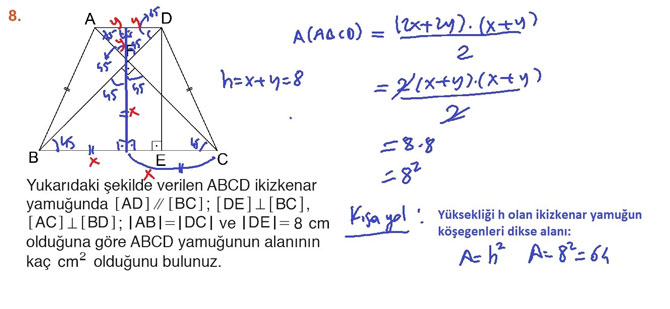 8.
A D
y y 45
45 45 45
y
F
45 45
45 45
x
45 45
B x E C
x
h=x+y=8
A(ABCD) = (2x+2y).(x+y) / 2
= 2(x+y).(x+y) / 2
= 8.8
= 8²
Yukarıdaki şekilde verilen ABCD ikizkenar
yamuğunda [AD] // [BC]; [DE]⊥[BC],
[AC]⊥[BD]; |AB|=|DC| ve |DE|= 8 cm
olduğuna göre ABCD yamuğunun alanının
kaç cm² olduğunu bulunuz.
Kısa yol :
Yüksekliği h olan ikizkenar yamuğun
köşegenleri dikse alanı:
A=h² A=8²=64